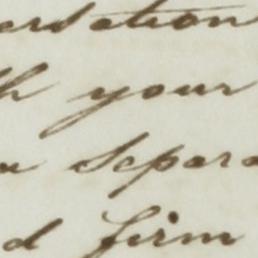 ersation
h your
u separa
d firm